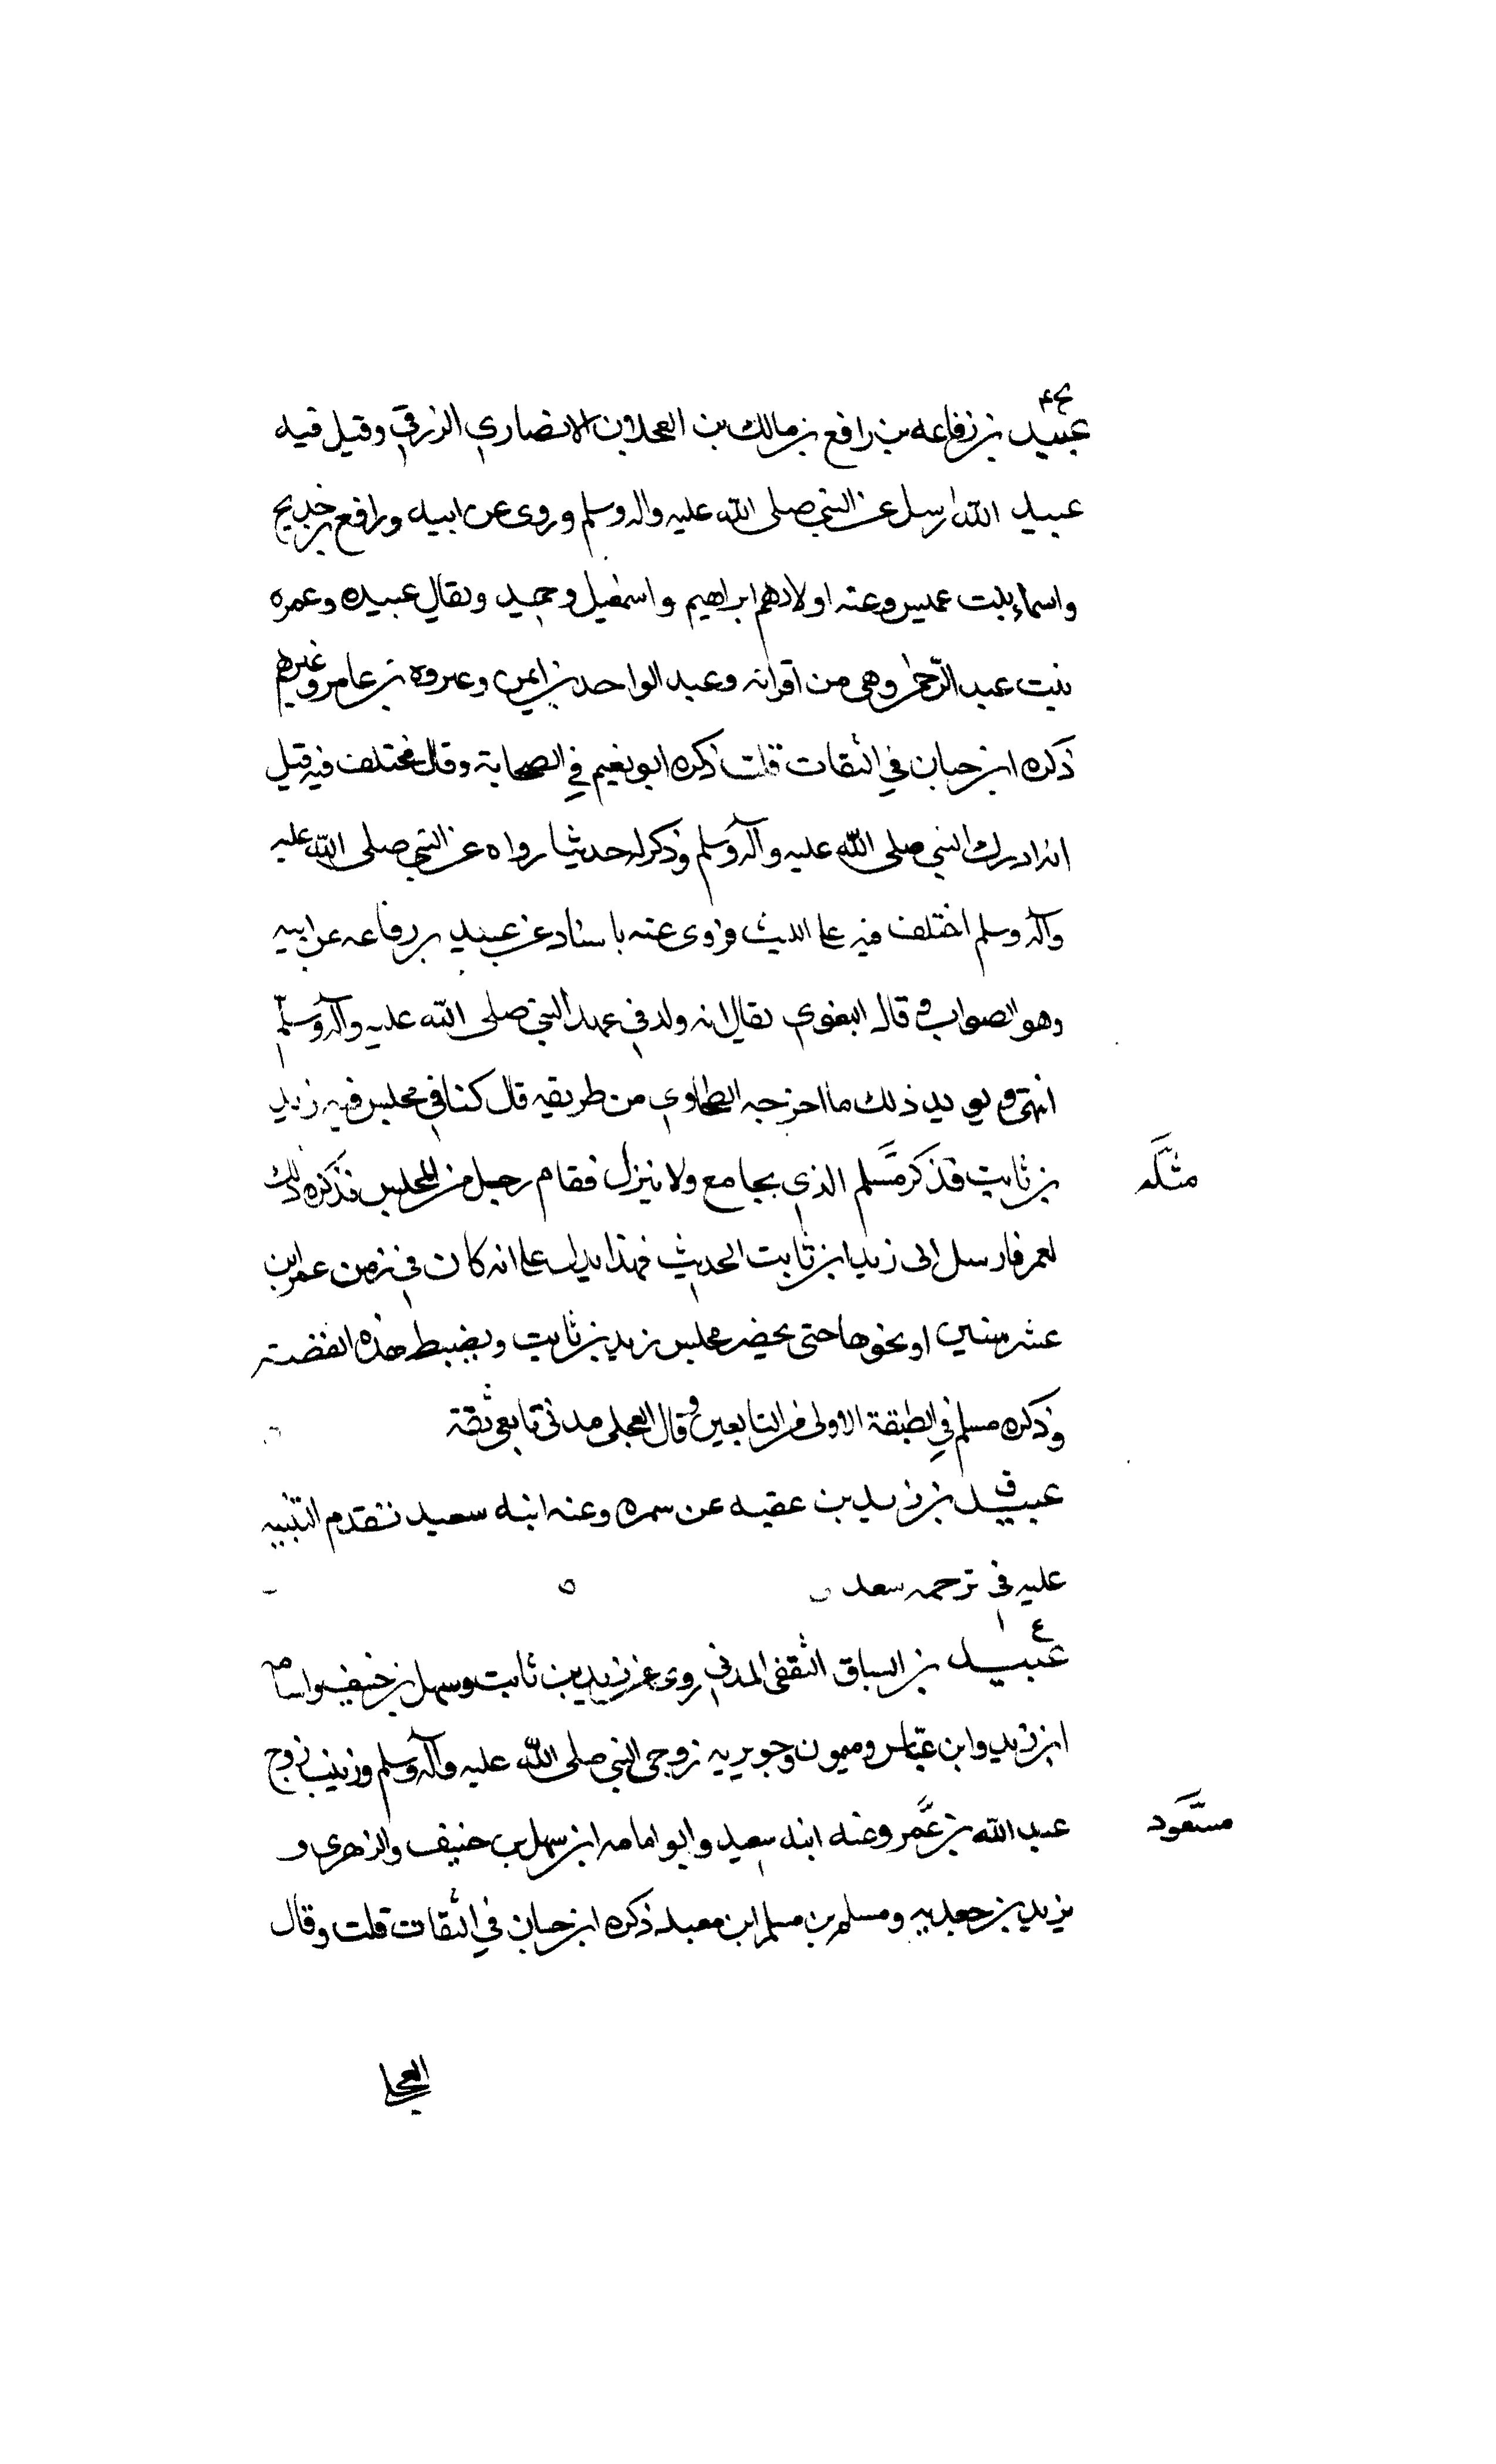 بخ ٤
عبيد بن رفاعه بن رافع بن مالك بن العجلان الانصاري الزرقي وقيل فيه
عبيد الله ارسل عن النبي صلى الله عليه واله وسلم وروى عن ابيه ورافع بن خديج
واسماء بنت عميس وعنه اولادهم ابراهيم واسمعيل وحميد ويقال عبيده وعمره
بنت عبد الرحمن وهي من اقرانه وعبد الواحد بن ايمن وعروه بن عامر وغيرهم
ذكره ابن حبان في الثقات قلت ذكره ابو نعيم في الصحابة وقال مختلف فيه قيل
انه ادرك النبي صلى الله عليه وآله وسلم وذكر له حديثا رواه عن النبي صلى الله عليه
وآله وسلم اختلف فيه على الليث فروى عنه باسناد عن عبيد بن رفاعه عن ابيه
وهو الصواب وقال البغوي يقال انه ولد في عهد النبي صلى الله عليه وآله وسلم
انتهى ويويد ذلك ما اخرجه الطحاوي من طريقه قال كنا في مجلس فيه زيد
بن ثابت فذكر مسلم الذي يجامع ولا ينزل فقام رجل من المجلس فذكره ذلك
مثله
لعمر فارسل الى زيد ابن ثابت الحديث فهذا يدل على انه كان في زمن عمر ابن
عشر سنين او نحوها حتى يحضر مجلس زيد بن ثابت ويضبط هذه القضية
وذكره مسلم في الطبقة الاولى من التابعين وقال العجلي مدني تابعي ثقة
عبيد بن زيد بن عقبه عن سمره وعنه ابنه سعيد تقدم التنبيه
عليه في ترجمه سعد
ع
عبيد بن السباق الثقفي المدني روى عن زيد بن ثابت وسهل بن حنيف واسامه
ابن زيد وابن عباس وميمون وجويريه زوجي النبي صلى الله عليه وآله وسلم وزينب زوج
عبد الله بن عمر وعنه ابنه سعيد وابو امامه ابن سهل بن حنيف والزهري و
مسعود
يزيد بن جعدبه ومسلم بن مسلم ابن معبد ذكره ابن حبان في الثقات قلت وقال
العجلي